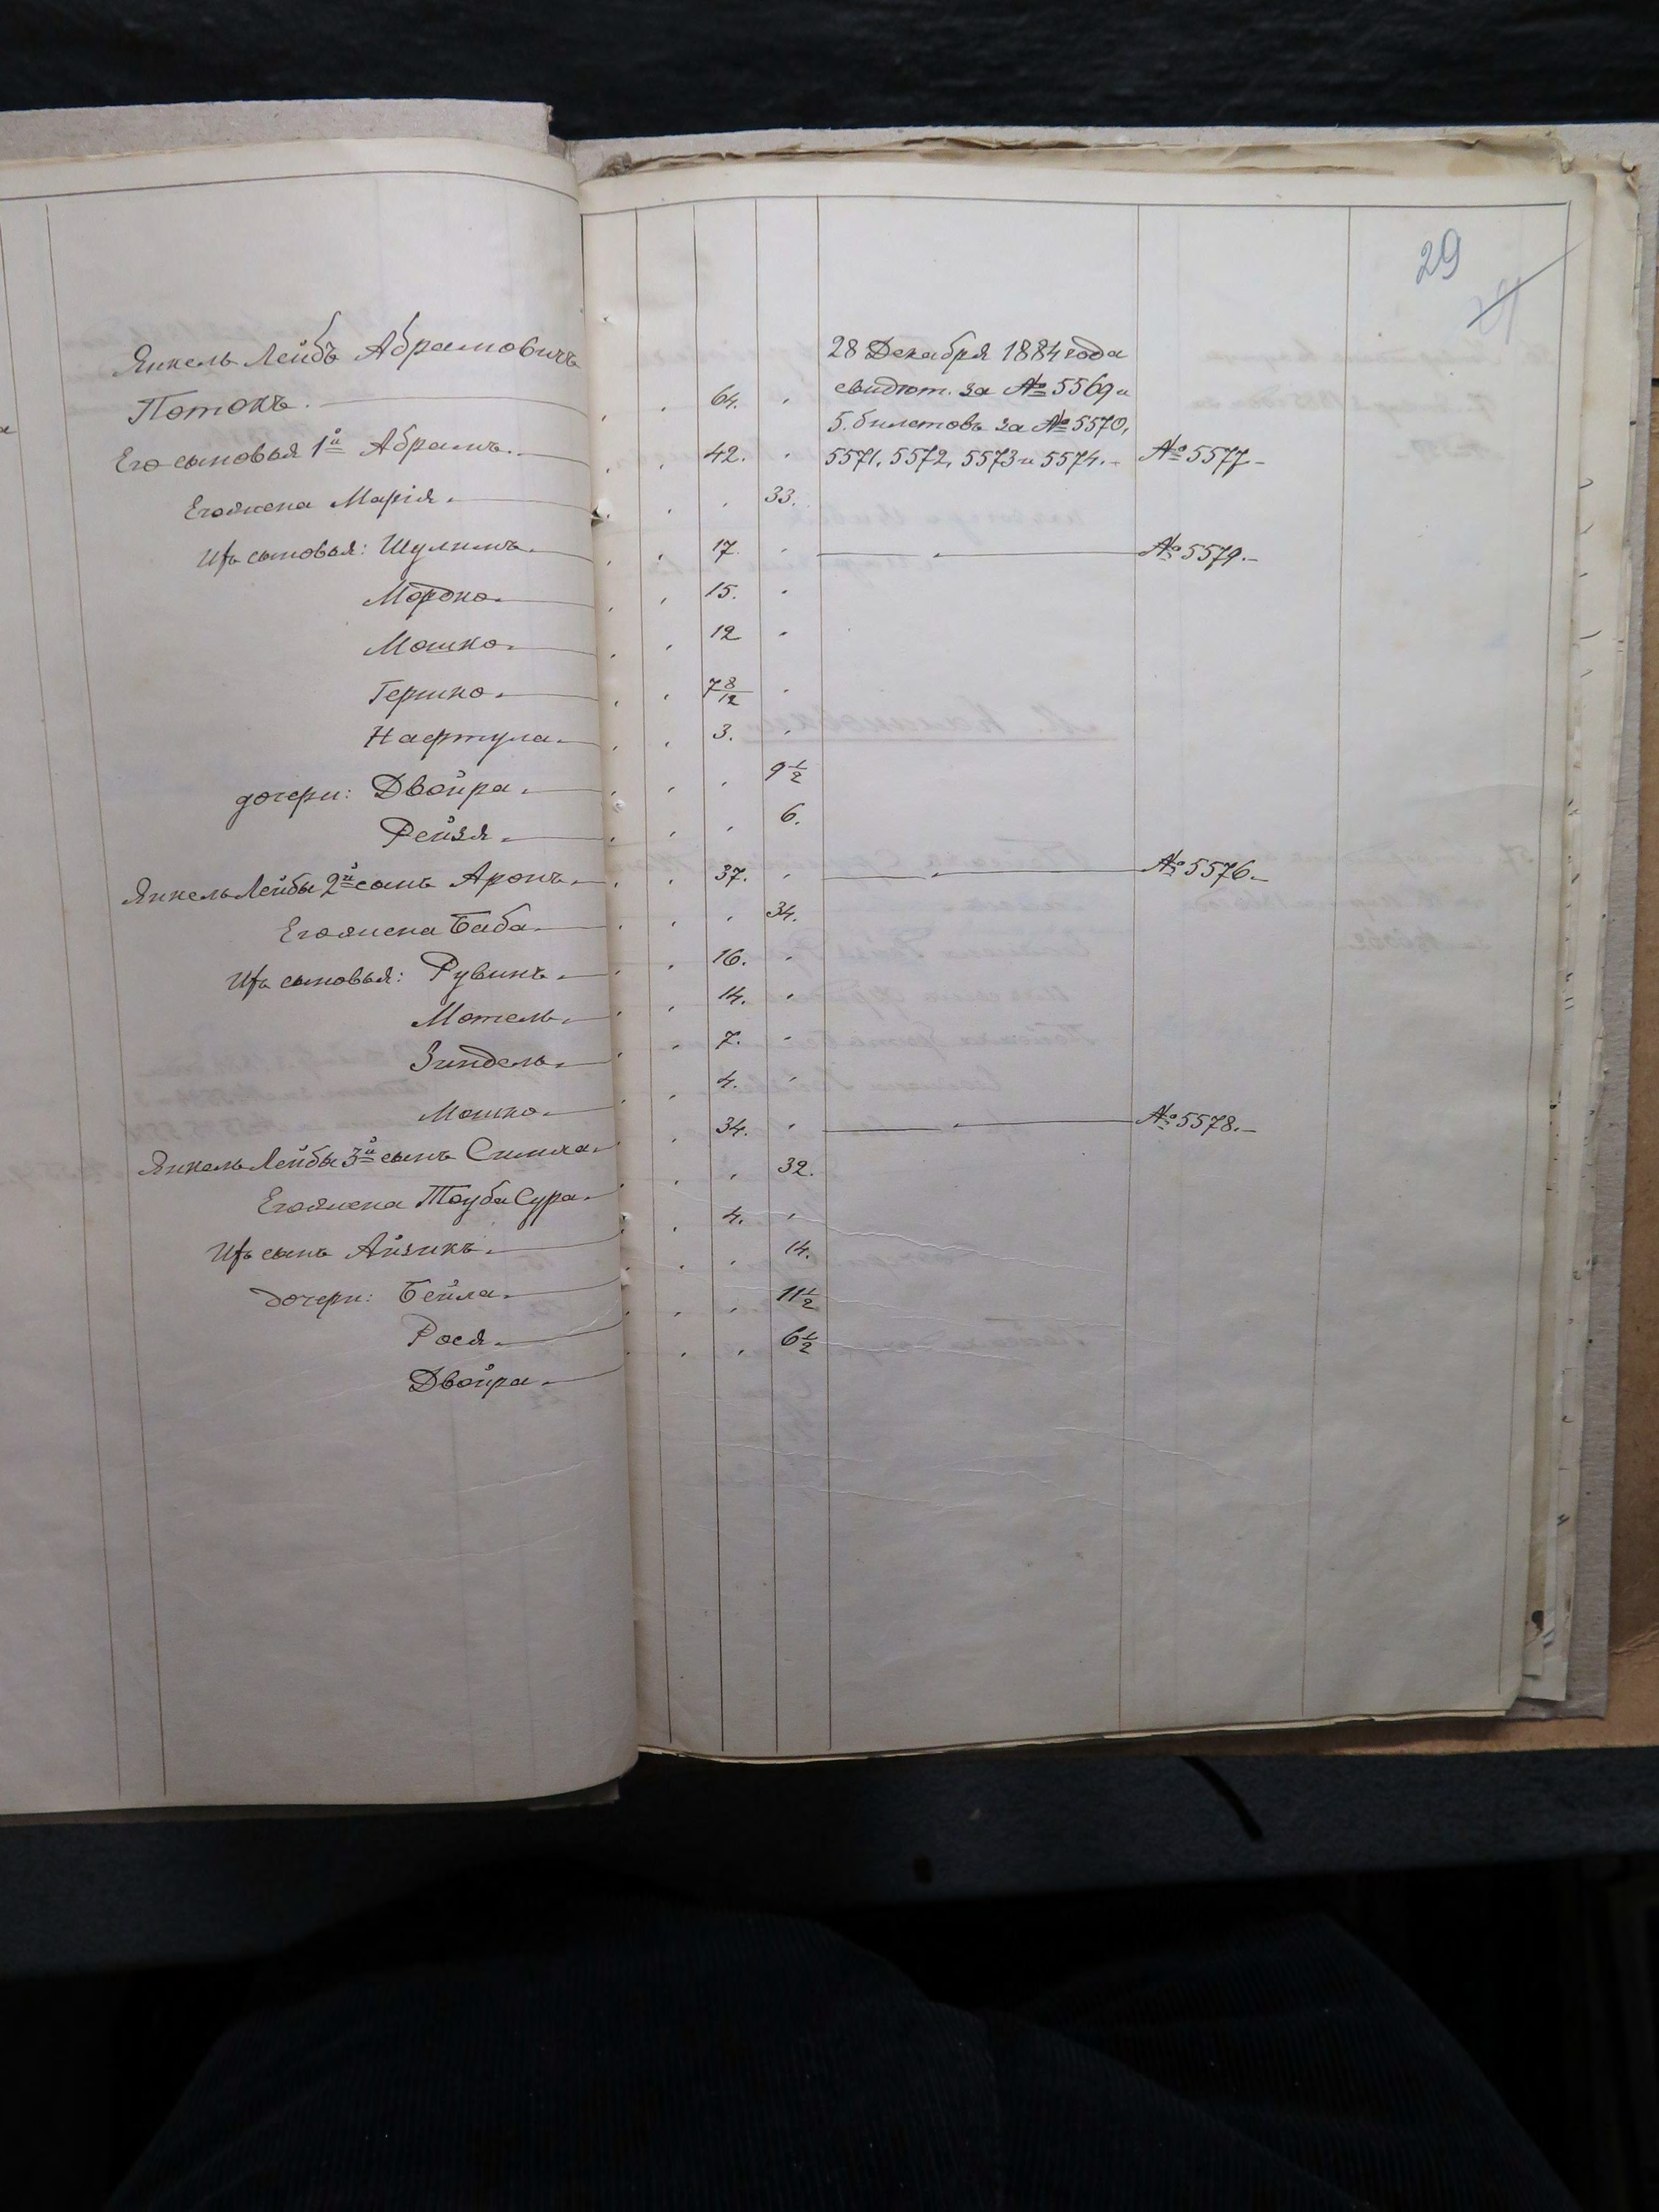 29
Янкель Лейбъ Абрамовичъ
28 Декабря 1884 года
Потокъ. 64.
свидѣт. за № 5569 и
5. билетовъ за № 5570,
Его сыновья 1й Абрамъ. 42. 5571, 5572, 5573 и 5574. № 5577
Его жена Марія. 33.
Ихъ сыновья: Шулимъ. 17. № 5579.
Мордко. 15.
Мошко. 12
Гершко. 7 8/12
Нафтула. 3.
дочери: Двойра. 9 1/2
Рейзя. 6.
Янкель Лейбы 2й сынъ Аронъ. 37. № 5576.
Его жена Баба. 34.
Ихъ сыновья: Рувинъ. 16.
Мотель. 14.
Зиндель. 7.
Мошко. 4.
Янкель Лейбы 3й сынъ Симха. 34. № 5578.
Его жена Тоуба Сура. 32.
Ихъ сынъ Айзикъ. 4.
дочери: Бейла. 14.
Рося. 11 1/2
Двойра. 6 1/2